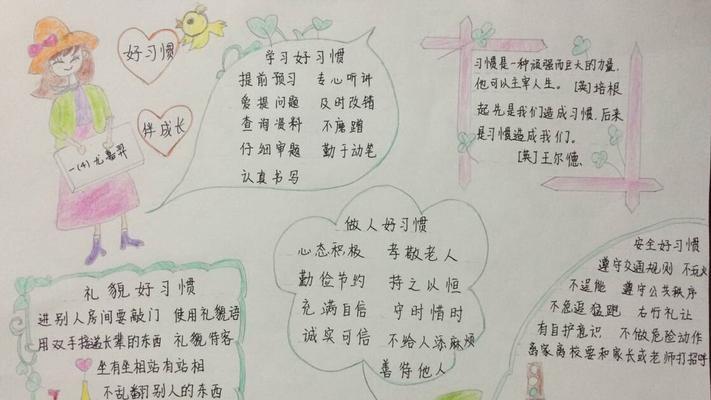 好习惯
伴成长
一(4)尤
学习好习惯
提前预习 专心听讲
爱提问题 及时改错
查询资料 不磨蹭
仔细审题 勤于动笔
认真书写
习惯是一种顽强而巨大的力量,
他可以主宰人生。 [英]培根
起先是我们造成习惯,后来
是习惯造成我们。
[英]王尔德
做人好习惯
心态积极 孝敬老人
勤俭节约 持之以恒
充满自信 守时惜时
诚实可信 不给人添麻烦
善待他人
礼貌好习惯
进别人房间要敲门 使用礼貌语
用双手接递长辈的东西 礼貌待客
坐有坐相站有站相
不乱翻别人的东西
安全好习惯
遵守交通规则 不玩火
不逞能 遵守公共秩序
不急追猛跑 右行礼让
有自护意识 不做危险动作
离家离校要和家长或老师打招呼